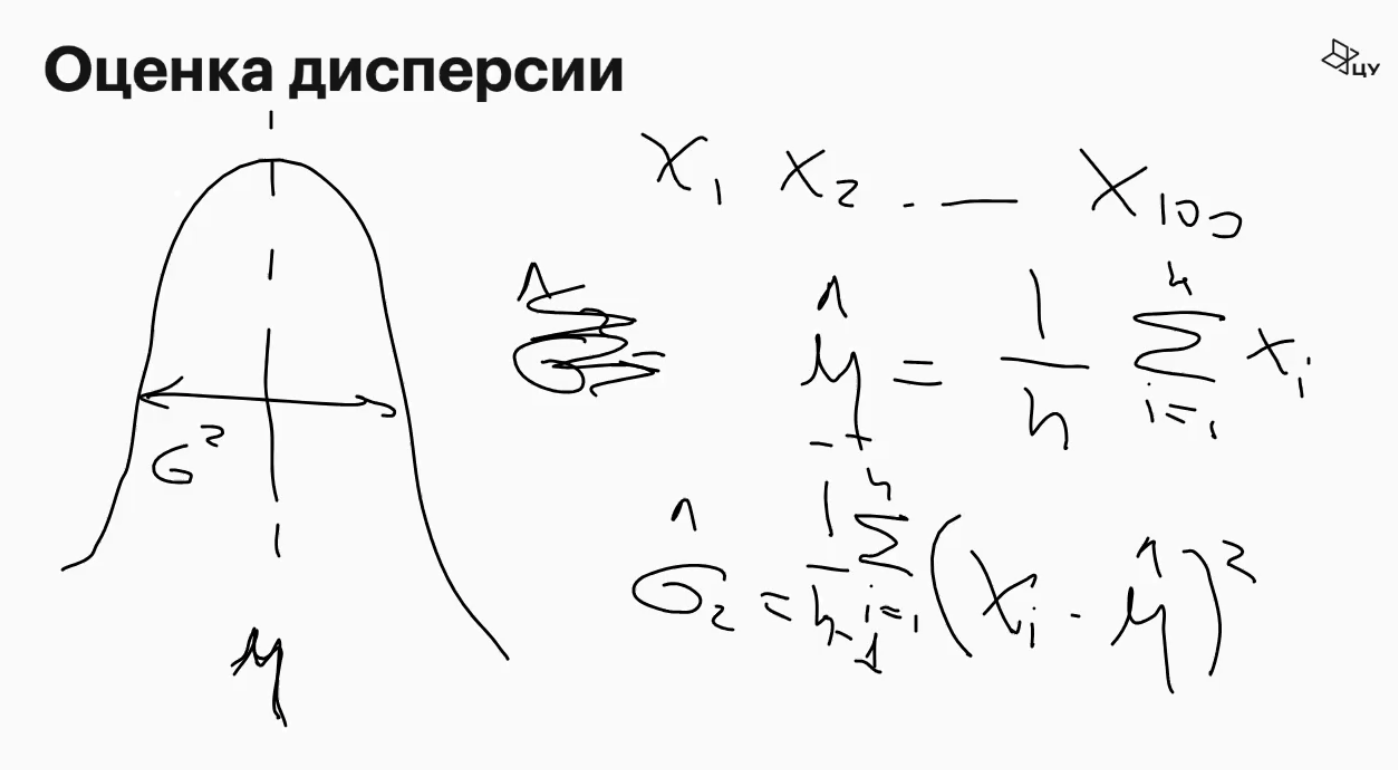 Оценка дисперсии
ЦУ
X₁ X₂ . — X₁₀₀
μ̂ = 1/n Σ i=1 n xᵢ
σ²
σ̂₂ = 1/n-1 Σ i=1 n (xᵢ - μ̂)²
μ